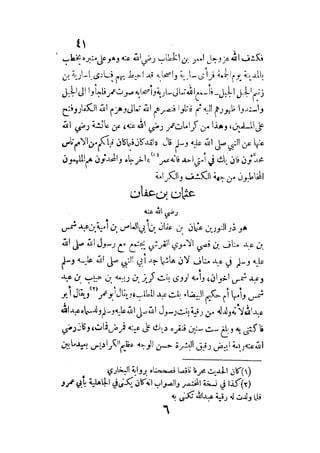 ٤١
فكشف الله عز وجل لعمر بن الخطاب رضي الله عنه وهو على منبره يخطب
بالمدينة يوم الجمعة فرأى سارية واصحابه قد احيط بهم فنادى يا سارية بن
زنيم الجبل الجبل فأسمع الله تعالى سارية وأصحابه صوت عمر فلجأوا الى الجبل
واسندوا ظهورهم اليه ثم قاتلوا فنصرهم الله تعالى وهزم الله الكفار وفتح
على المسلمين، وهذا من كرامات عمر رضي الله عنه، عن عائشة رضي الله
عنها عن النبي صلى الله عليه وسلم قال «لقد كان فيما كان قبلكم من الامم ناس
محدثون فان يك في أمتي احد فانه عمر»(١) اخرجاه والمحدثون هم الملهمون
المخاطبون من جهة الكشف والكرامة
عثمان بن عفان
رضي الله عنه
هو ذو النورين عثمان بن عفان بن أبي العاص بن أمية بن عبد شمس
بن عبد مناف بن قصي الاموي القرشي يجتمع مع رسول الله صلى الله
عليه وسلم في عبد مناف لان هاشما جد أبي النبي صلى الله عليه وسلم
وعبد شمس اخوان، وأمه اروى بنت كريز بن ربيعة بن حبيب بن عبد
شمس وأمها أم حكيم البيضاء بنت عبد المطلب، ويقال أبو عمر(٢) ويقال أبو
عبد الله لأنه ولد له من رقية بنت رسول الله صلى الله عليه وسلم ولد سماه عبد الله
فاكتنى به وبلغ ست سنين فنقره ديك على عينه فمرض فمات، وكان رضي
الله عنه ربعة ابيض رقيق البشرة حسن الوجه عظيم الكراديس بعيد ما بين
(١) كان الحديث محرفا ناقصا فصححناه برواية البخاري
(٢) كذا في نسخة المختصر والصواب انه كان يكنى في الجاهلية بأبي عمرو
فلما ولدت له رقية عبد الله تكنى به
٦